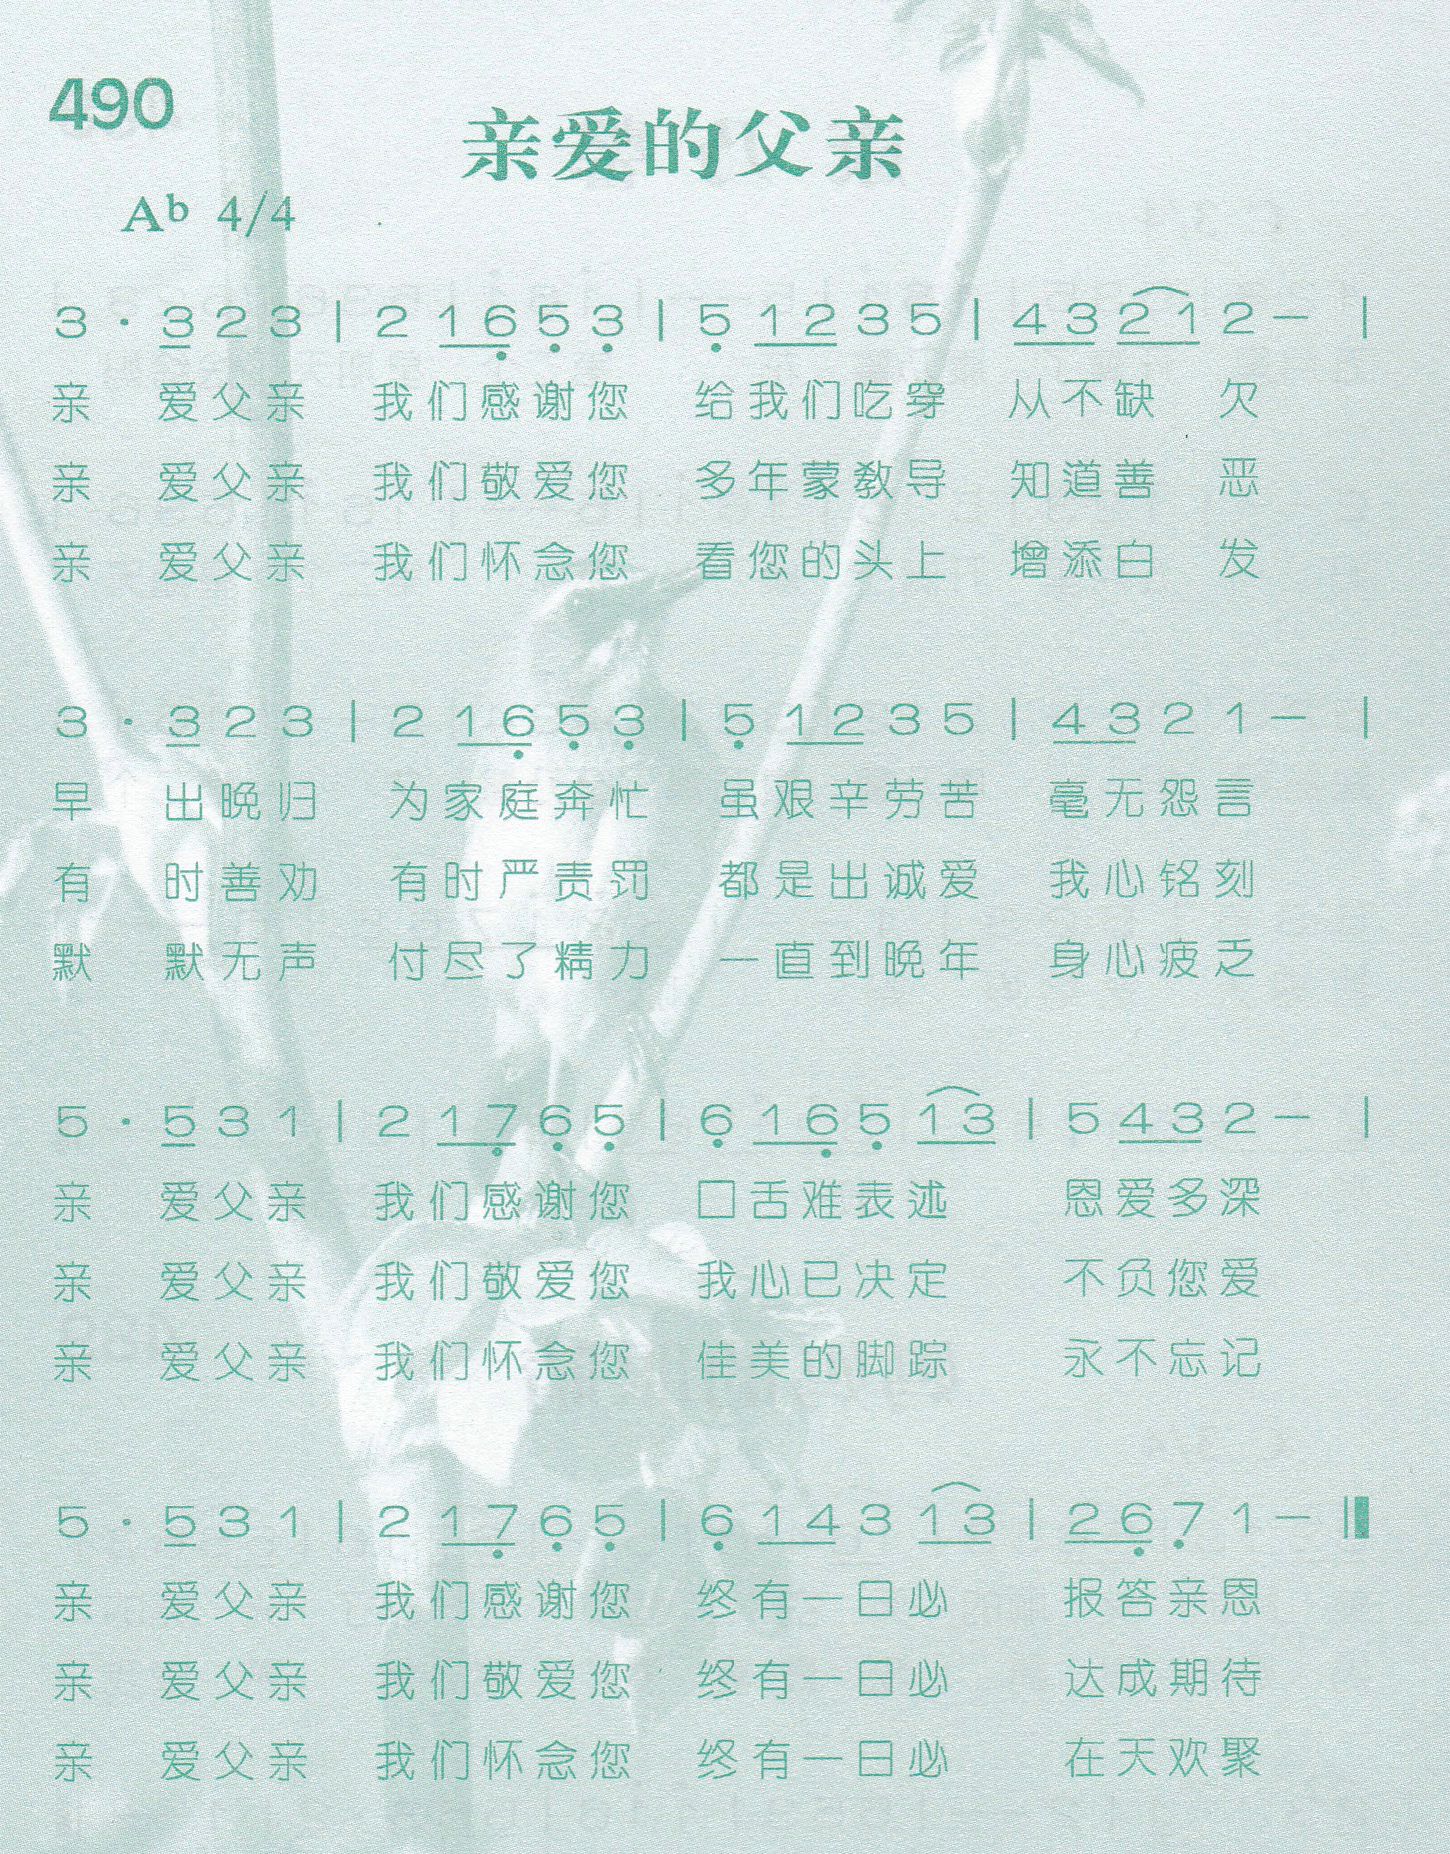 490
亲爱的父亲
Ab 4/4
3 · 3 2 3 | 2 1 6 5 3 | 5 1 2 3 5 | 4 3 2 1 2 — |
亲 爱父亲 我们感谢您 给我们吃穿 从不缺 欠
亲 爱父亲 我们敬爱您 多年蒙教导 知道善 恶
亲 爱父亲 我们怀念您 看您的头上 增添白 发
3 · 3 2 3 | 2 1 6 5 3 | 5 1 2 3 5 | 4 3 2 1 — |
早 出晚归 为家庭奔忙 虽艰辛劳苦 毫无怨言
有 时善劝 有时严责罚 都是出诚爱 我心铭刻
默 默无声 付尽了精力 一直到晚年 身心疲乏
5 · 5 3 1 | 2 1 7 6 5 | 6 1 6 5 1 3 | 5 4 3 2 — |
亲 爱父亲 我们感谢您 口舌难表述 恩爱多深
亲 爱父亲 我们敬爱您 我心已决定 不负您爱
亲 爱父亲 我们怀念您 佳美的脚踪 永不忘记
5 · 5 3 1 | 2 1 7 6 5 | 6 1 4 3 1 3 | 2 6 7 1 — ‖
亲 爱父亲 我们感谢您 终有一日必 报答亲恩
亲 爱父亲 我们敬爱您 终有一日必 达成期待
亲 爱父亲 我们怀念您 终有一日必 在天欢聚